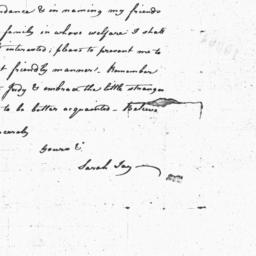 dance & in naming my friends
family in whose welfare I shall
interested; please to present me to
t friendly manner! - Remember
Judy & embrace the little stranger
to be better acquainted - Believe
incerely
Yours &
Sarah Jay